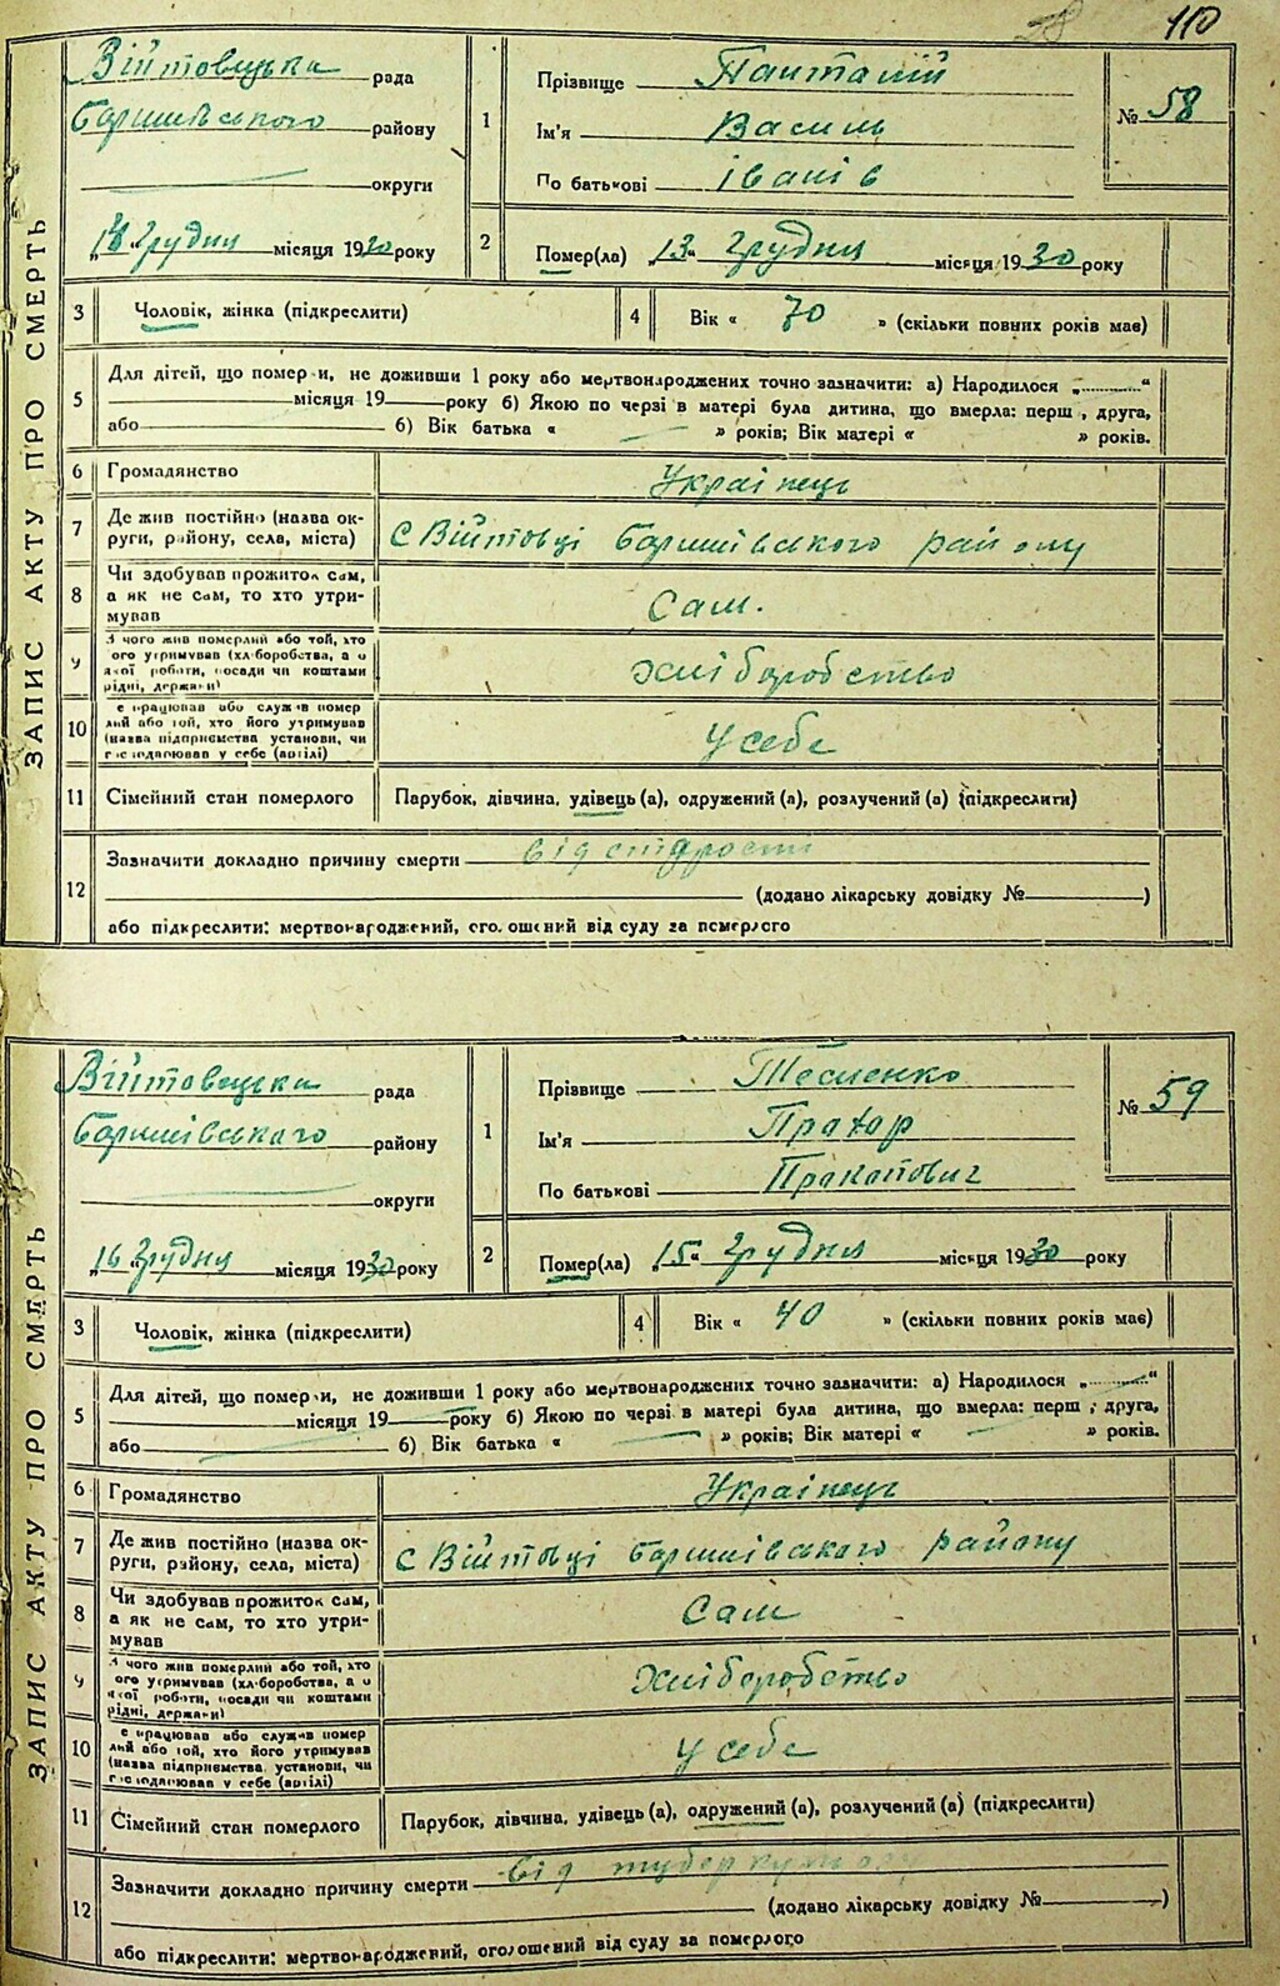 110
ЗАПИС АКТУ ПРО СМЕРТЬ
Війтовецька рада
Баришівського району
округи
„14“ грудня місяця 1930 року
1
Прізвище Панталій
Ім'я Василь
По батькові Іванів
№ 58
2
Помер(ла) „13“ грудня місяця 1930 року
3 Чоловік, жінка (підкреслити)
4 Вік « 70 » (скільки повних років має)
5 Для дітей, що померли, не доживши 1 року або мертвонароджених точно зазначити: а) Народилося „ “
місяця 19 року б) Якою по черзі в матері була дитина, що вмерла: перш , друга,
або б) Вік батька « » років; Вік матері « » років.
6 Громадянство Українець
7 Де жив постійно (назва округи, району, села, міста) С Війтовці Баришівського району
8 Чи здобував прожиток сам,
а як не сам, то хто утри-
мував
Сам.
9 З чого жив померлий або той, хто
ого утримував (хліборобства, а о
якої роботи, посади чи коштами
рідні, держави)
Хліборобство
10 е працював або служив помер
лий або той, хто його утримував
(назва підприємства установи, чи
господарював у себе (артілі)
У себе
11 Сімейний стан померлого Парубок, дівчина, удівець (а), одружений (а), розлучений (а) (підкреслити)
12 Зазначити докладно причину смерти від старости
(додано лікарську довідку № )
або підкреслити: мертвонароджений, оголошений від суду за померлого
ЗАПИС АКТУ ПРО СМЕРТЬ
Війтовецька рада
Баришівського району
округи
„16“ грудня місяця 1930 року
1
Прізвище Тесленко
Ім'я Прахор
По батькові Пракопович
№ 59
2
Помер(ла) „15“ грудня місяця 1930 року
3 Чоловік, жінка (підкреслити)
4 Вік « 40 » (скільки повних років має)
5 Для дітей, що померли, не доживши 1 року або мертвонароджених точно зазначити: а) Народилося „ “
місяця 19 року б) Якою по черзі в матері була дитина, що вмерла: перш , друга,
або б) Вік батька « » років; Вік матері « » років.
6 Громадянство Українець
7 Де жив постійно (назва округи, району, села, міста) С Війтовці Баришівського району
8 Чи здобував прожиток сам,
а як не сам, то хто утри-
мував
Сам
9 З чого жив померлий або той, хто
ого утримував (хліборобства, а о
якої роботи, посади чи коштами
рідні, держави)
Хліборобство
10 е працював або служив помер
лий або той, хто його утримував
(назва підприємства установи, чи
господарював у себе (артілі)
У себе
11 Сімейний стан померлого Парубок, дівчина, удівець (а), одружений (а), розлучений (а) (підкреслити)
12 Зазначити докладно причину смерти від туберкульозу
(додано лікарську довідку № )
або підкреслити: мертвонароджений, оголошений від суду за померлого